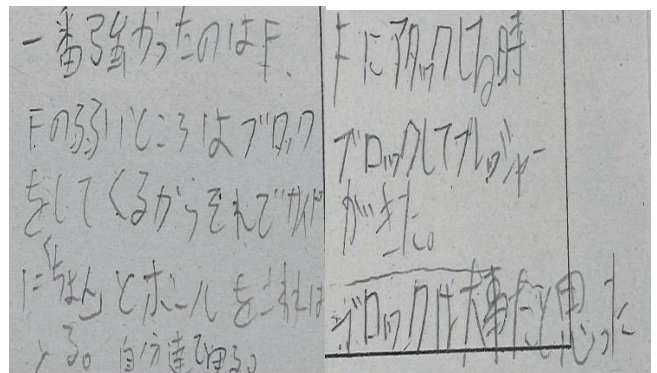 一番強かったのはF、
Fの弱いところはブロック
をしてくるからそれでサイド
に「ちょん」とボールをこれは
る。自分達で困る。
Fにアタックしてる時
ブロックしてプレッシャー
がきた。
ブロックは大事だと思った